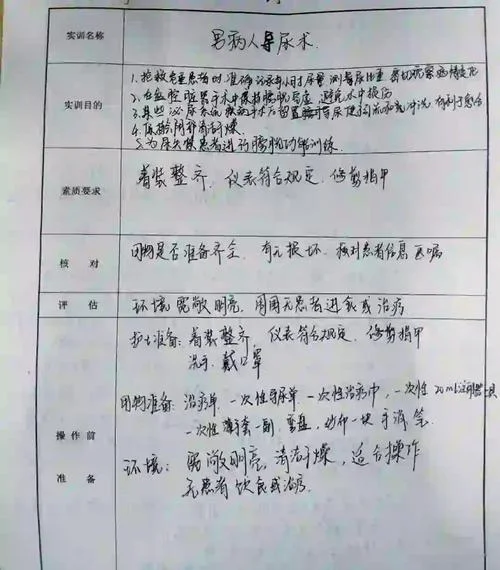 实训名称
男病人导尿术.
实训目的
1. 抢救危重患者时准确记录每小时尿量 测量尿比重
2. 在盆腔脏器手术中保持膀胱空虚 避免术中损伤
3. 某些泌尿系统疾病手术后留置 便于引流和冲洗
4. 保持 清洁干燥.
5. 为尿失禁患者进行膀胱功能训练.
素质要求
着装整齐, 仪表符合规定, 修剪指甲
核 对
用物是否准备齐全, 有无损坏. 核对患者信息 医嘱
评 估
环境宽敞明亮, 周围无患者进食或治疗
操作前
准 备
护士准备: 着装整齐, 仪表符合规定, 修剪指甲
洗手 戴口罩
用物准备: 治疗单. 一次性导尿单 一次性治疗巾, 一次性 20ml
一次性 手套一副, 弯盘, 纱布一块 手消 笔
环境: 宽敞明亮, 清洁干燥, 适合操作
无患者饮食或治疗.